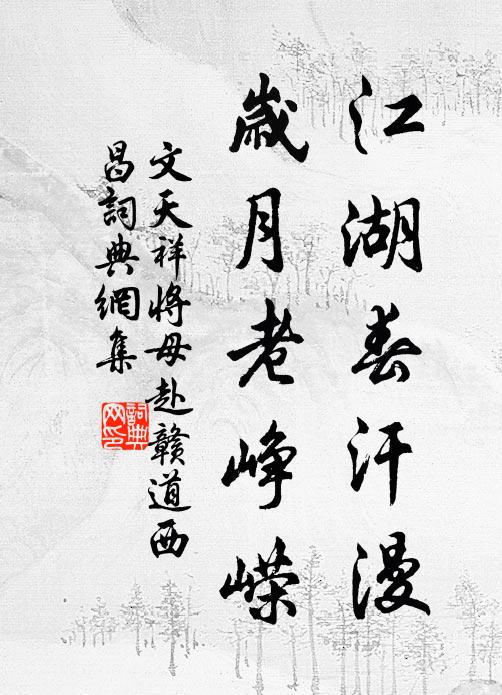 江湖春汗漫
歲月老峥嶸
文天祥將母赴贛道西
昌詞典網集
詞典网印